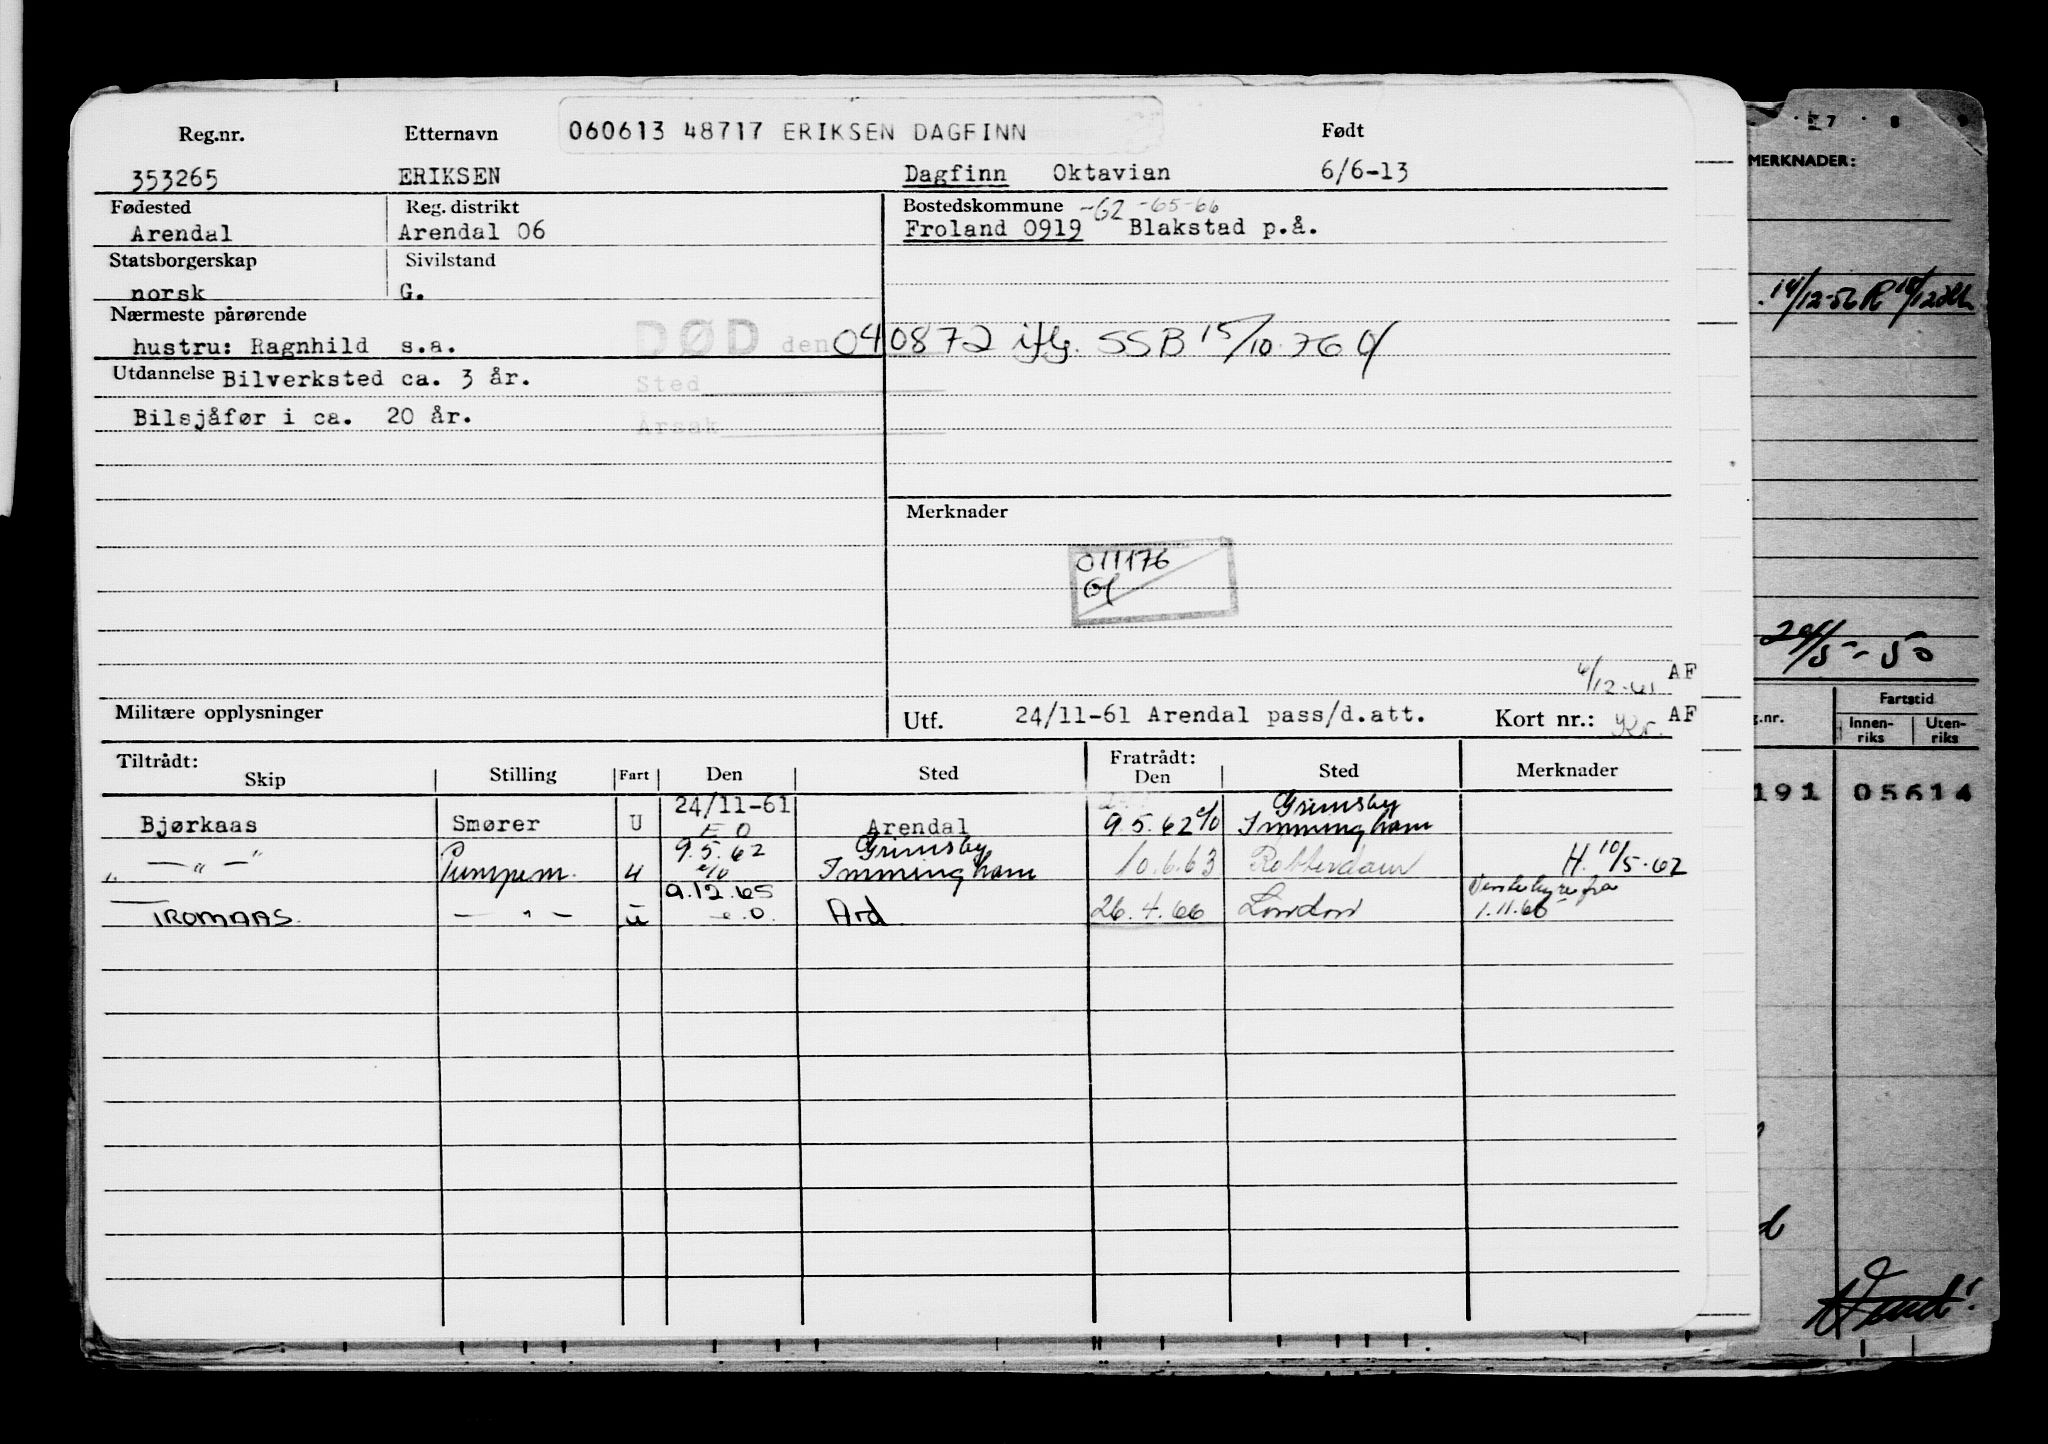 Reg.nr. Etternavn 060613 48717 ERIKSEN DAGFINN Født
353265 ERIKSEN Dagfinn Oktavian 6/6-13
Fødested Reg. distrikt Bostedskommune -62 -65-66
Arendal Arendal 06 Froland 0919 Blakstad p.å.
Statsborgerskap Sivilstand
norsk G.
Nærmeste pårørende
hustru: Ragnhild s.a. DØD den 040872 iflg. SSB 15/10.76
Utdannelse Bilverksted ca. 3 år. Sted
Bilsjåfør i ca. 20 år. Årsak
Merknader
011176
6/12-61 AF
Militære opplysninger Utf. 24/11-61 Arendal pass/d.att. Kort nr.: AF
Tiltrådt: Fratrådt:
Skip Stilling Fart Den Sted Den Sted Merknader
24/11-61 Grimsby
Bjørkaas Smører U E O Arendal 9.5.62 e/o Immingham
9.5.62 Grimsby
— " — " Pumpem. U e/o Immingham 10.6.63 Rotterdam H. 10/5-62
9.12.65
TROMAAS. — " — U e.o. Ard 26.4.66 London 1.11.66
7 8 9
MERKNADER:
14/12-56 R
/5-50
g.nr. Fartstid
Innen-riks Uten-riks
191 05614
Vend!